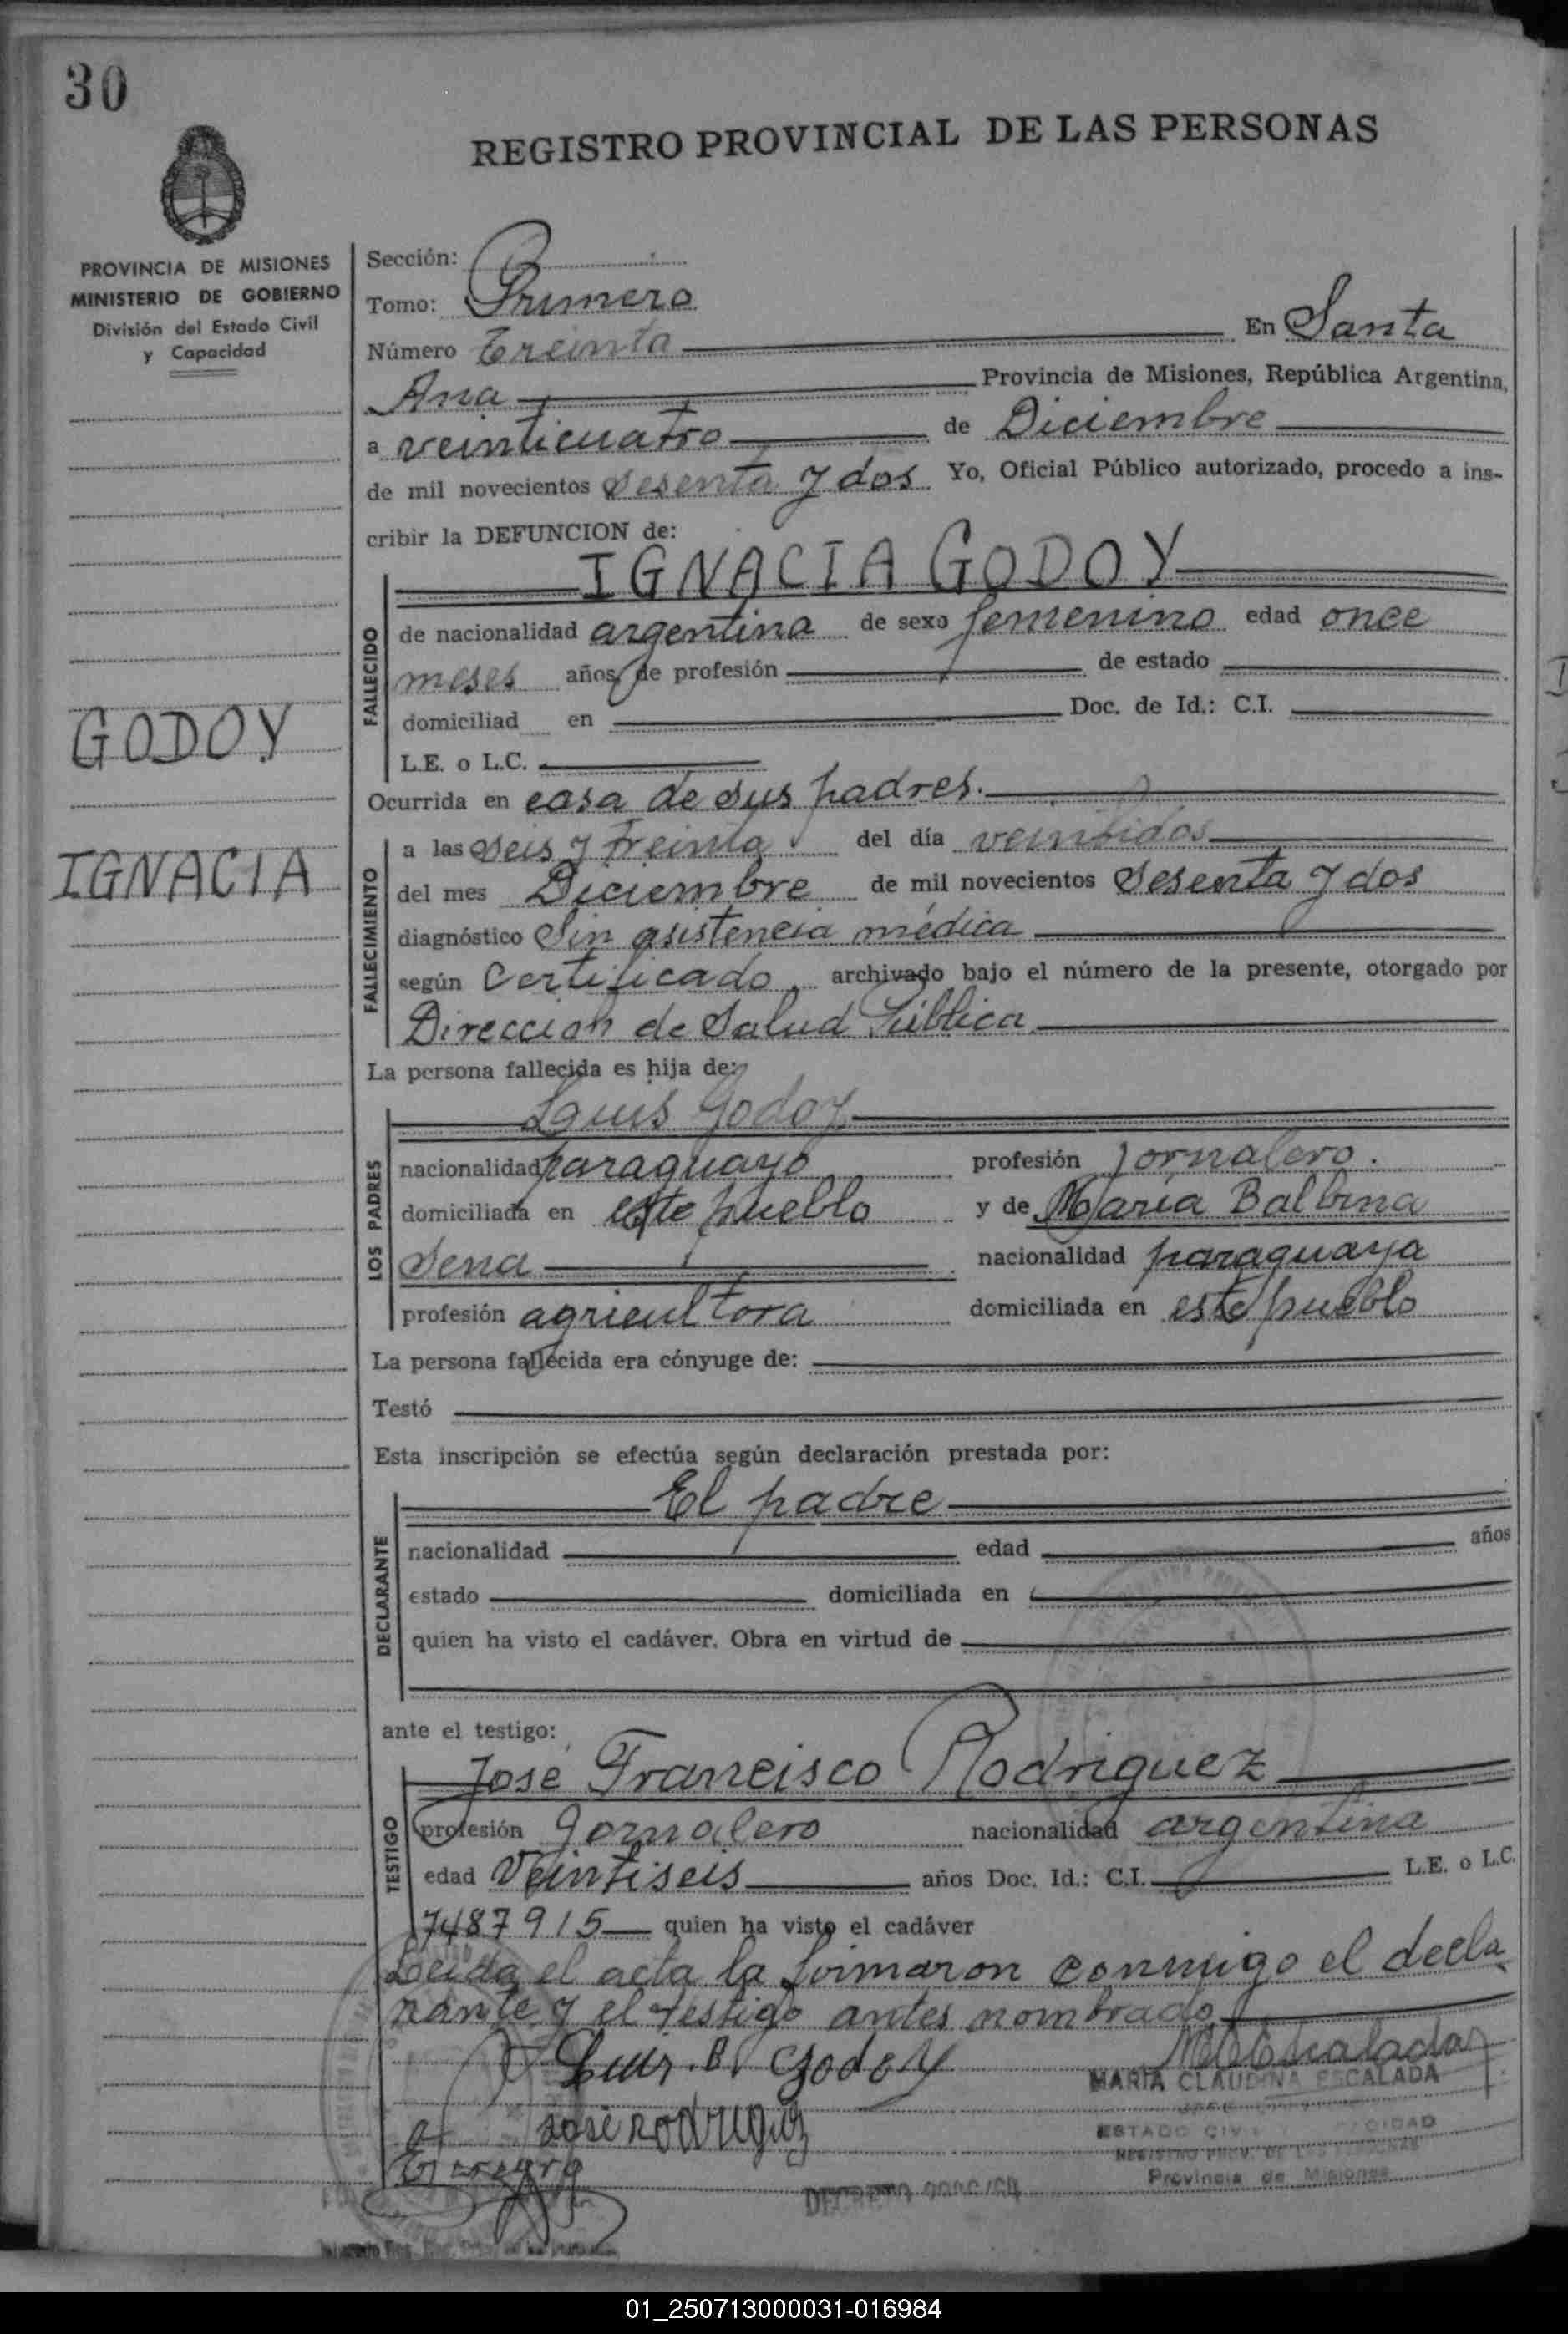 30
REGISTRO PROVINCIAL DE LAS PERSONAS
PROVINCIA DE MISIONES
MINISTERIO DE GOBIERNO
División del Estado Civil
y Capacidad
GODOY
IGNACIA
Sección:
Tomo: Primero
Número Treinta En Santa
Ana Provincia de Misiones, República Argentina,
a veinticuatro de Diciembre
de mil novecientos sesenta y dos Yo, Oficial Público autorizado, procedo a ins-
cribir la DEFUNCION de:
IGNACIA GODOY
FALLECIDO
de nacionalidad argentina de sexo femenino edad once
meses años, de profesión de estado
domiciliad en Doc. de Id.: C.I.
L.E. o L.C.
Ocurrida en casa de sus padres.
FALLECIMIENTO
a las seis y treinta del día veintidos
del mes Diciembre de mil novecientos sesenta y dos
diagnóstico Sin asistencia médica
según Certificado archivado bajo el número de la presente, otorgado por
Direccion de Salud Pública
La persona fallecida es hija de:
LOS PADRES
Luis Godoy
nacionalidad paraguayo profesión jornalero.
domiciliada en este pueblo y de María Balbina
Sena nacionalidad paraguaya
profesión agricultora domiciliada en este pueblo
La persona fallecida era cónyuge de:
Testó
Esta inscripción se efectúa según declaración prestada por:
DECLARANTE
El padre
nacionalidad edad años
estado domiciliada en
quien ha visto el cadáver. Obra en virtud de
ante el testigo:
TESTIGO
José Francisco Rodriguez
profesión jornalero nacionalidad argentina
edad Veintiseis años Doc. Id.: C.I. L.E. o L.C.
7487915 quien ha visto el cadáver
Leida el acta la firmaron conmigo el decla
rante y el testigo antes nombrado
Luis B Godoy
MARIA CLAUDINA ESCALADA
José Rodriguez
ESTADO
REGISTRO PROV. DE LAS PERSONAS
Provincia de Misiones
01_250713000031-016984